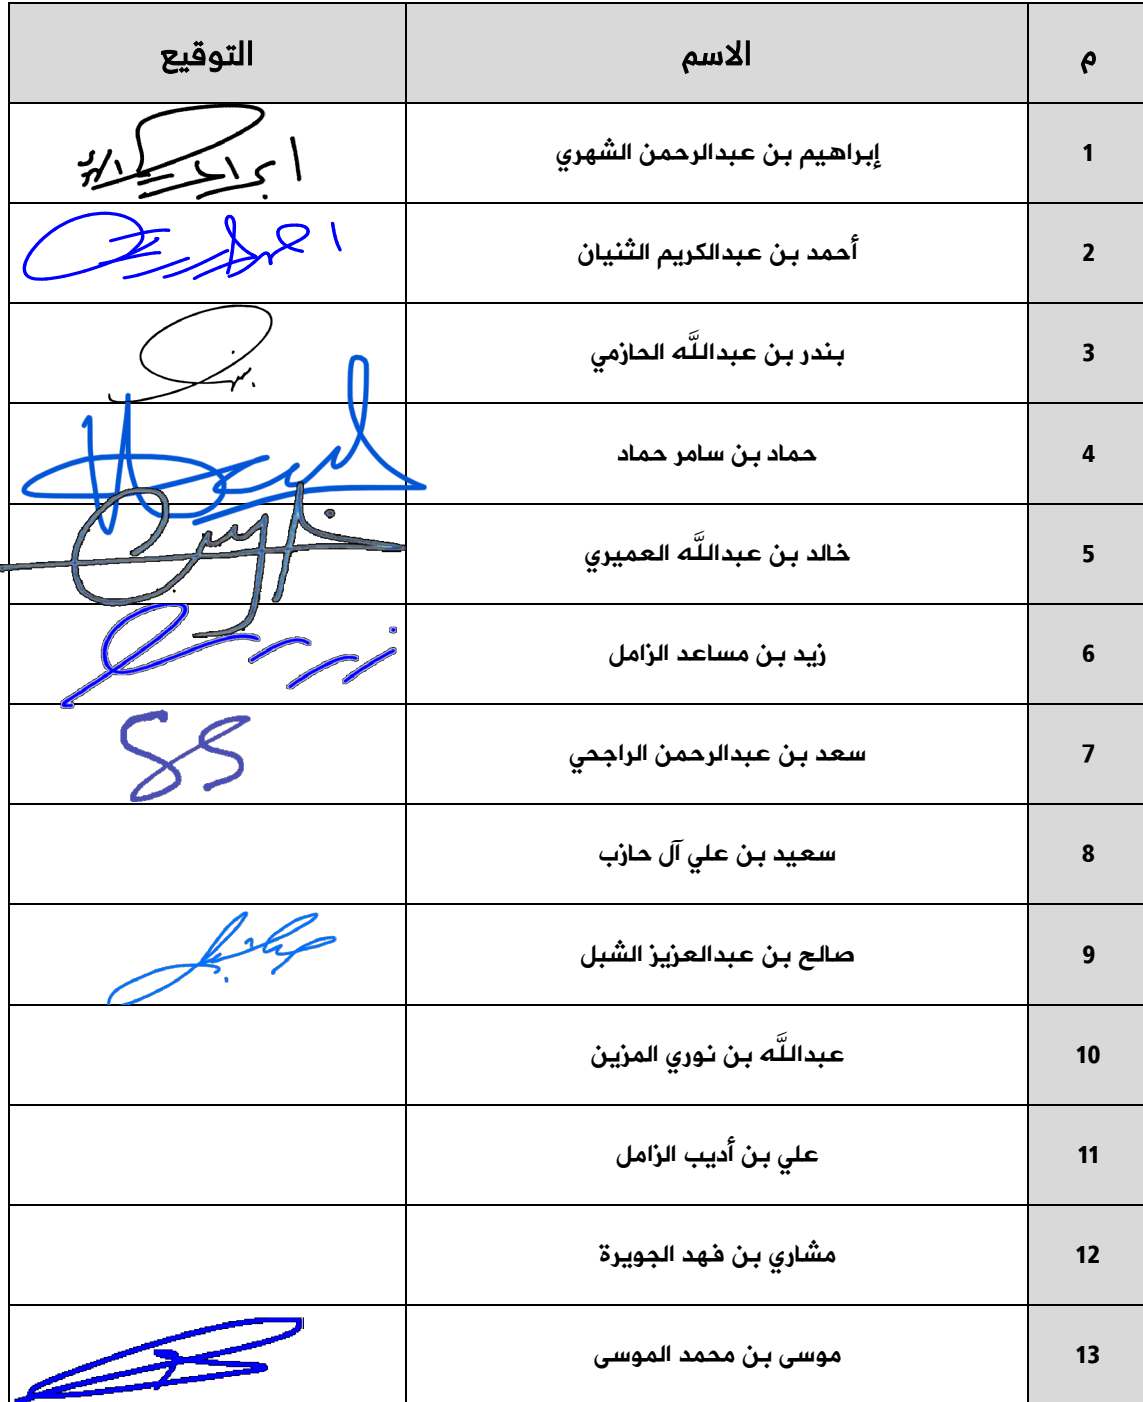 م الاسم التوقيع
1 إبراهيم بن عبدالرحمن الشهري
2 أحمد بن عبدالكريم الثنيان
3 بندر بن عبداللَّه الحازمي
4 حماد بن سامر حماد
5 خالد بن عبداللَّه العميري
6 زيد بن مساعد الزامل
7 سعد بن عبدالرحمن الراجحي
8 سعيد بن علي آل حازب
9 صالح بن عبدالعزيز الشبل
10 عبداللَّه بن نوري المزين
11 علي بن أديب الزامل
12 مشاري بن فهد الجويرة
13 موسى بن محمد الموسى